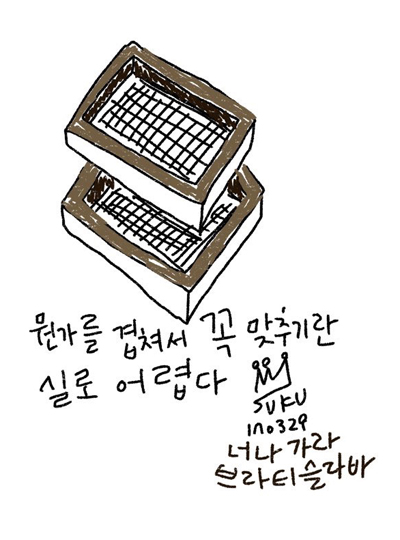 뭔가를 겹쳐서 꼭 맞추기란
실로 어렵다
SUKU
ino329
너나 가라
브라티슬라바